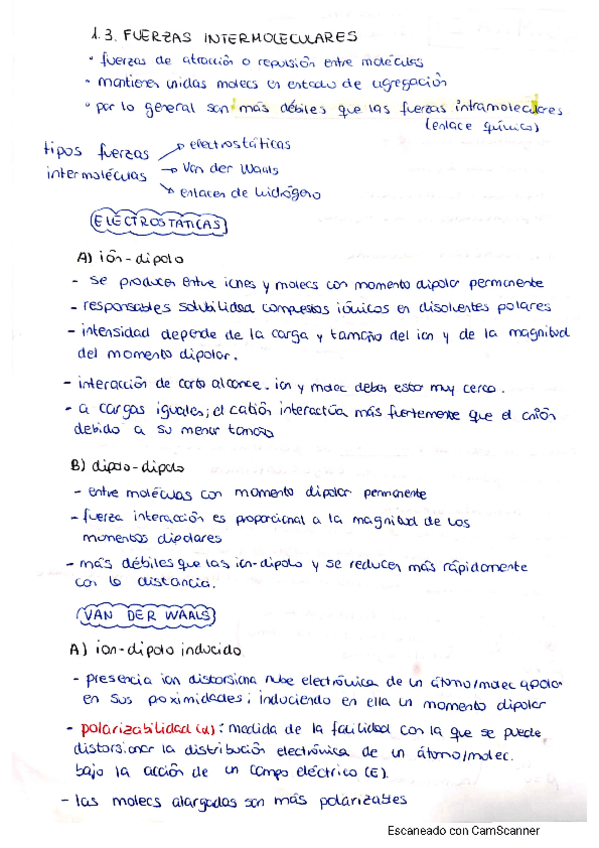 1.3. FUERZAS INTERMOLECULARES
• fuerzas de atracción o repulsión entre moléculas
• mantienen unidas molecs en estado de agregación
• por lo general son más débiles que las fuerzas intramoleculares
(enlace químico)
tipos fuerzas → electrostáticas
intermoléculas → Van der Waals
→ enlaces de hidrógeno
ELECTROSTÁTICAS
A) ión-dipolo
- se producen entre iones y molecs con momento dipolar permanente
- responsables solubilidad compuestos iónicos en disolventes polares
- intensidad depende de la carga y tamaño del ion y de la magnitud
del momento dipolar.
- interacción de corto alcance. ion y molec deben estar muy cerca.
- a cargas iguales; el catión interactúa más fuertemente que el anión
debido a su menor tamaño
B) dipolo-dipolo
- entre moléculas con momento dipolar permanente
- fuerza interacción es proporcional a la magnitud de los
momentos dipolares
- más débiles que las ion-dipolo y se reducen más rápidamente
con la distancia.
VAN DER WAALS
A) ion-dipolo inducido
- presencia ion distorsiona nube electrónica de un átomo/molec apolar
en sus poximidades; induciendo en ella un momento dipolar
- polarizabilidad (α): medida de la facilidad con la que se puede
distorsionar la distribución electrónica de un átomo/molec.
bajo la acción de un campo eléctrico (E).
- las molecs alargadas son más polarizables
Escaneado con CamScanner